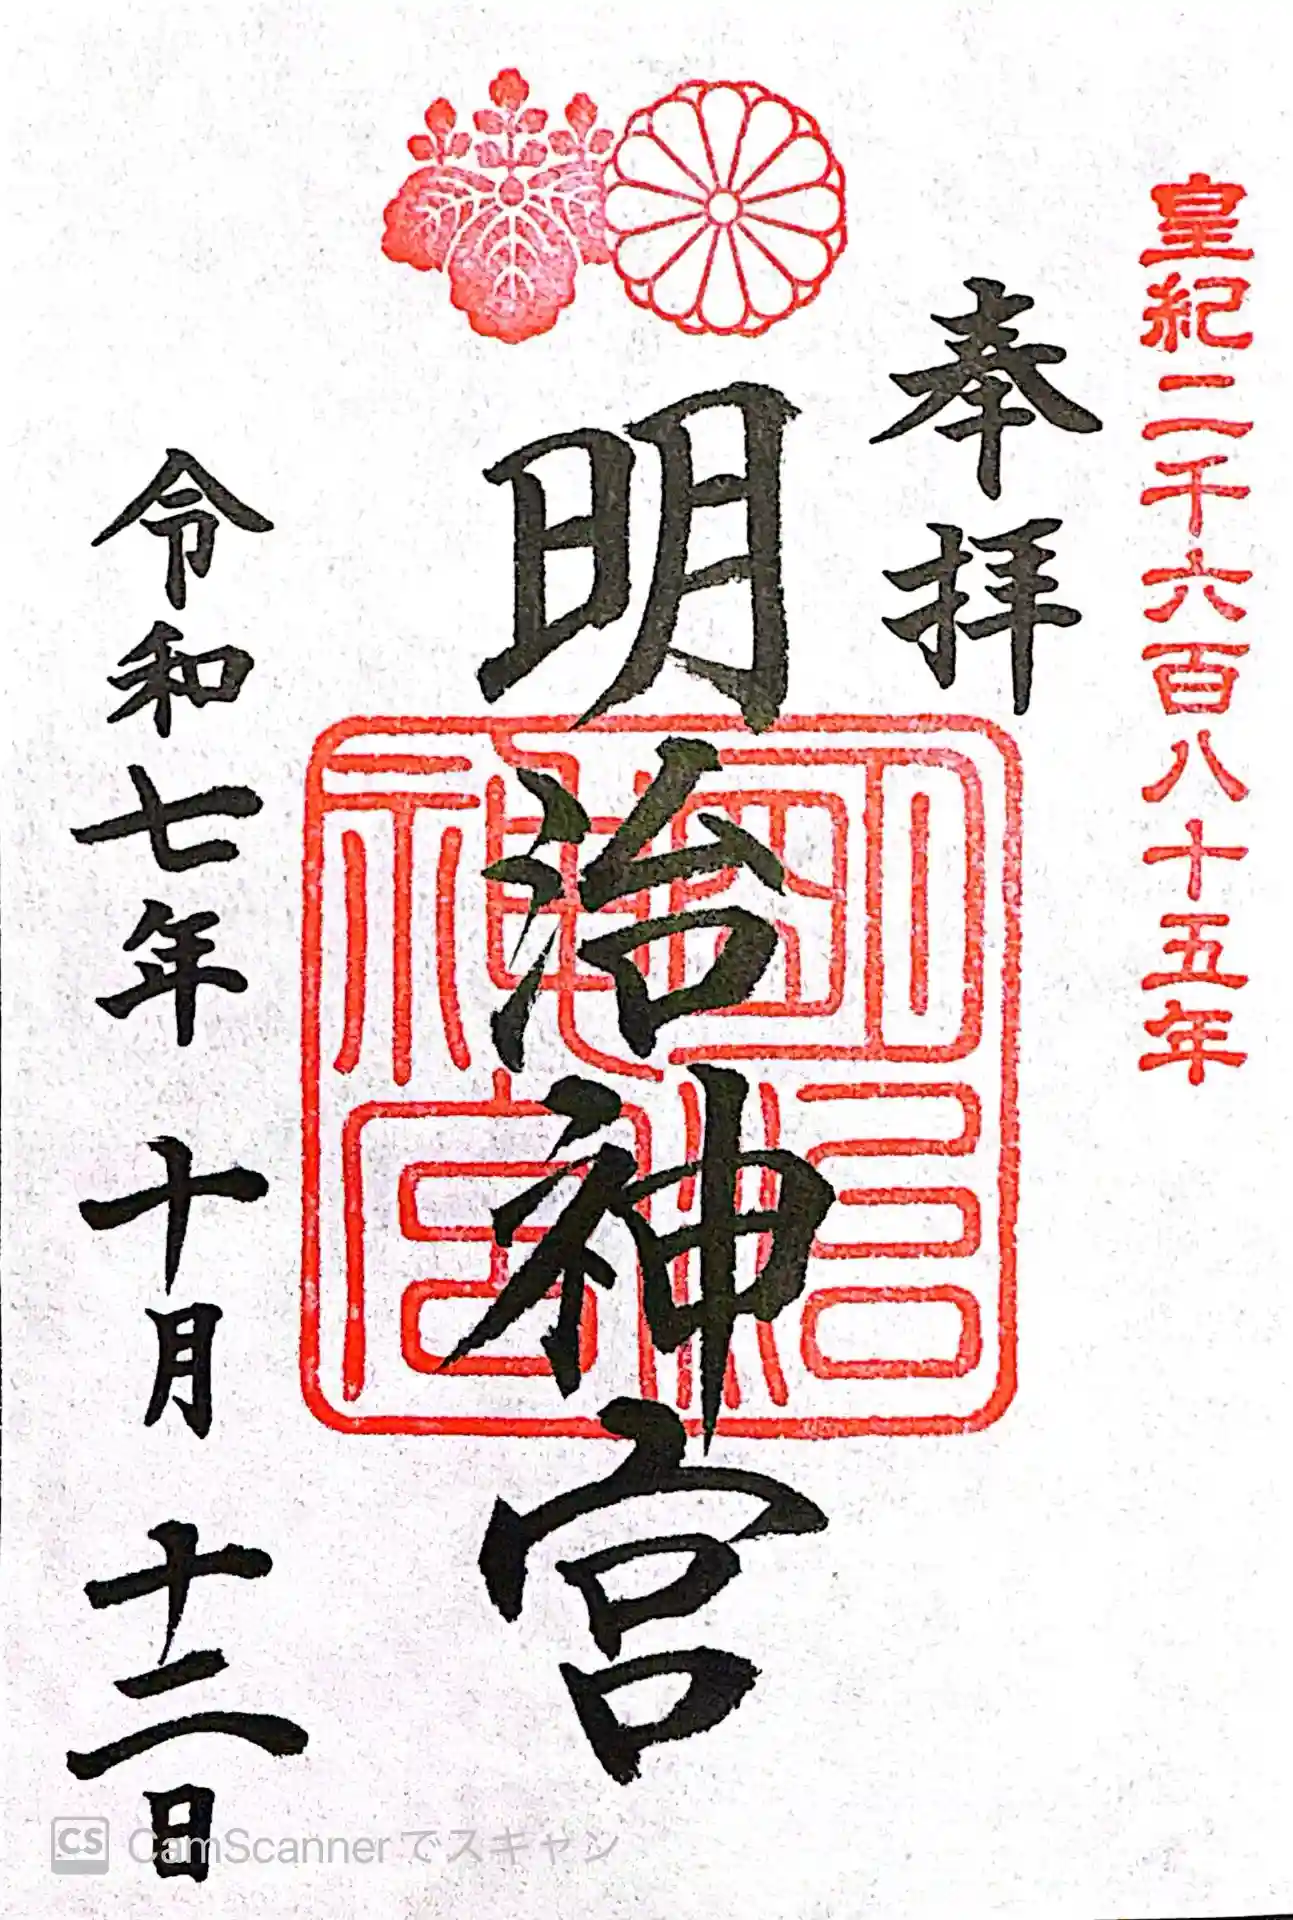 皇紀二千六百八十五年
奉拝
明治神宮
明治神宮
令和七年 十月 十二日
CS CamScanner でスキャン